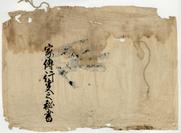 家傳行英之秘書